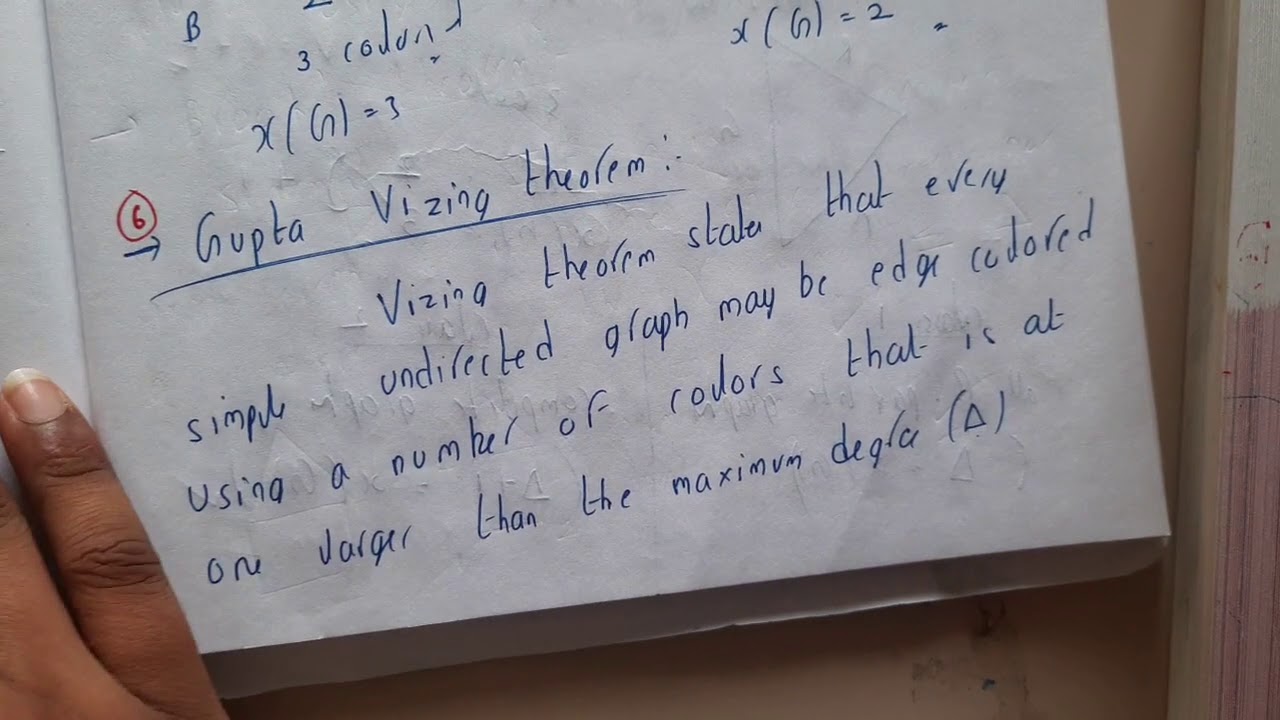 B
3 colors
x(G) = 2
x(G) = 3
6 → Gupta Vizing theorem :-
Vizing theorem states that every
simple undirected graph may be edge colored
using a number of colors that is at
one larger than the maximum degree (Δ)